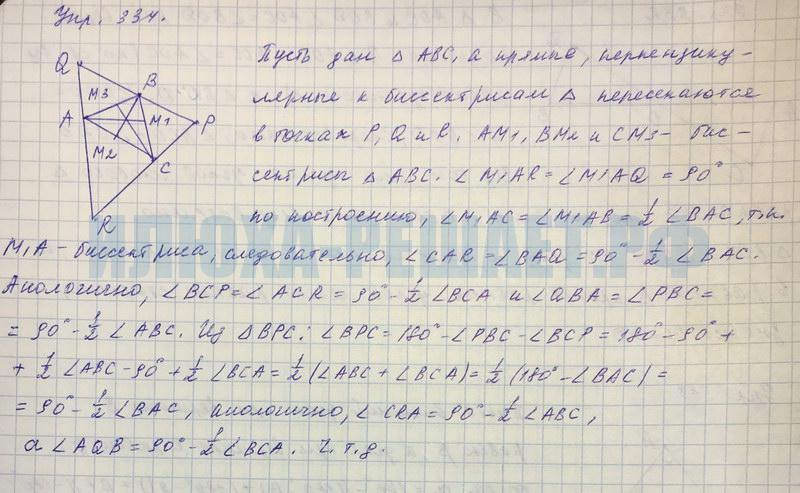 Упр. 334.
Q
B
M3
A
M1
P
M2
C
R
Пусть дан △ ABC, а прямые, перпендику-
лярные к биссектрисам △ пересекаются
в точках P, Q и R. AM1, BM2 и CM3 - бис-
сектрисы △ ABC. ∠ M1AR = ∠M1AQ = 90°
по построению, ∠M1AC = ∠M1AB = 1/2 ∠BAC, т.к.
M1A - биссектриса, следовательно, ∠CAR = ∠BAQ = 90° - 1/2 ∠BAC.
Аналогично, ∠BCP = ∠ACR = 90° - 1/2 ∠BCA и ∠QBA = ∠PBC =
= 90° - 1/2 ∠ABC. Из △BPC: ∠BPC = 180° - ∠PBC - ∠BCP = 180° - 90° +
+ 1/2 ∠ABC - 90° + 1/2 ∠BCA = 1/2 (∠ABC + ∠BCA) = 1/2 (180° - ∠BAC) =
= 90° - 1/2 ∠BAC, аналогично, ∠CRA = 90° - 1/2 ∠ABC,
а ∠AQB = 90° - 1/2 ∠BCA. Ч.т.д.